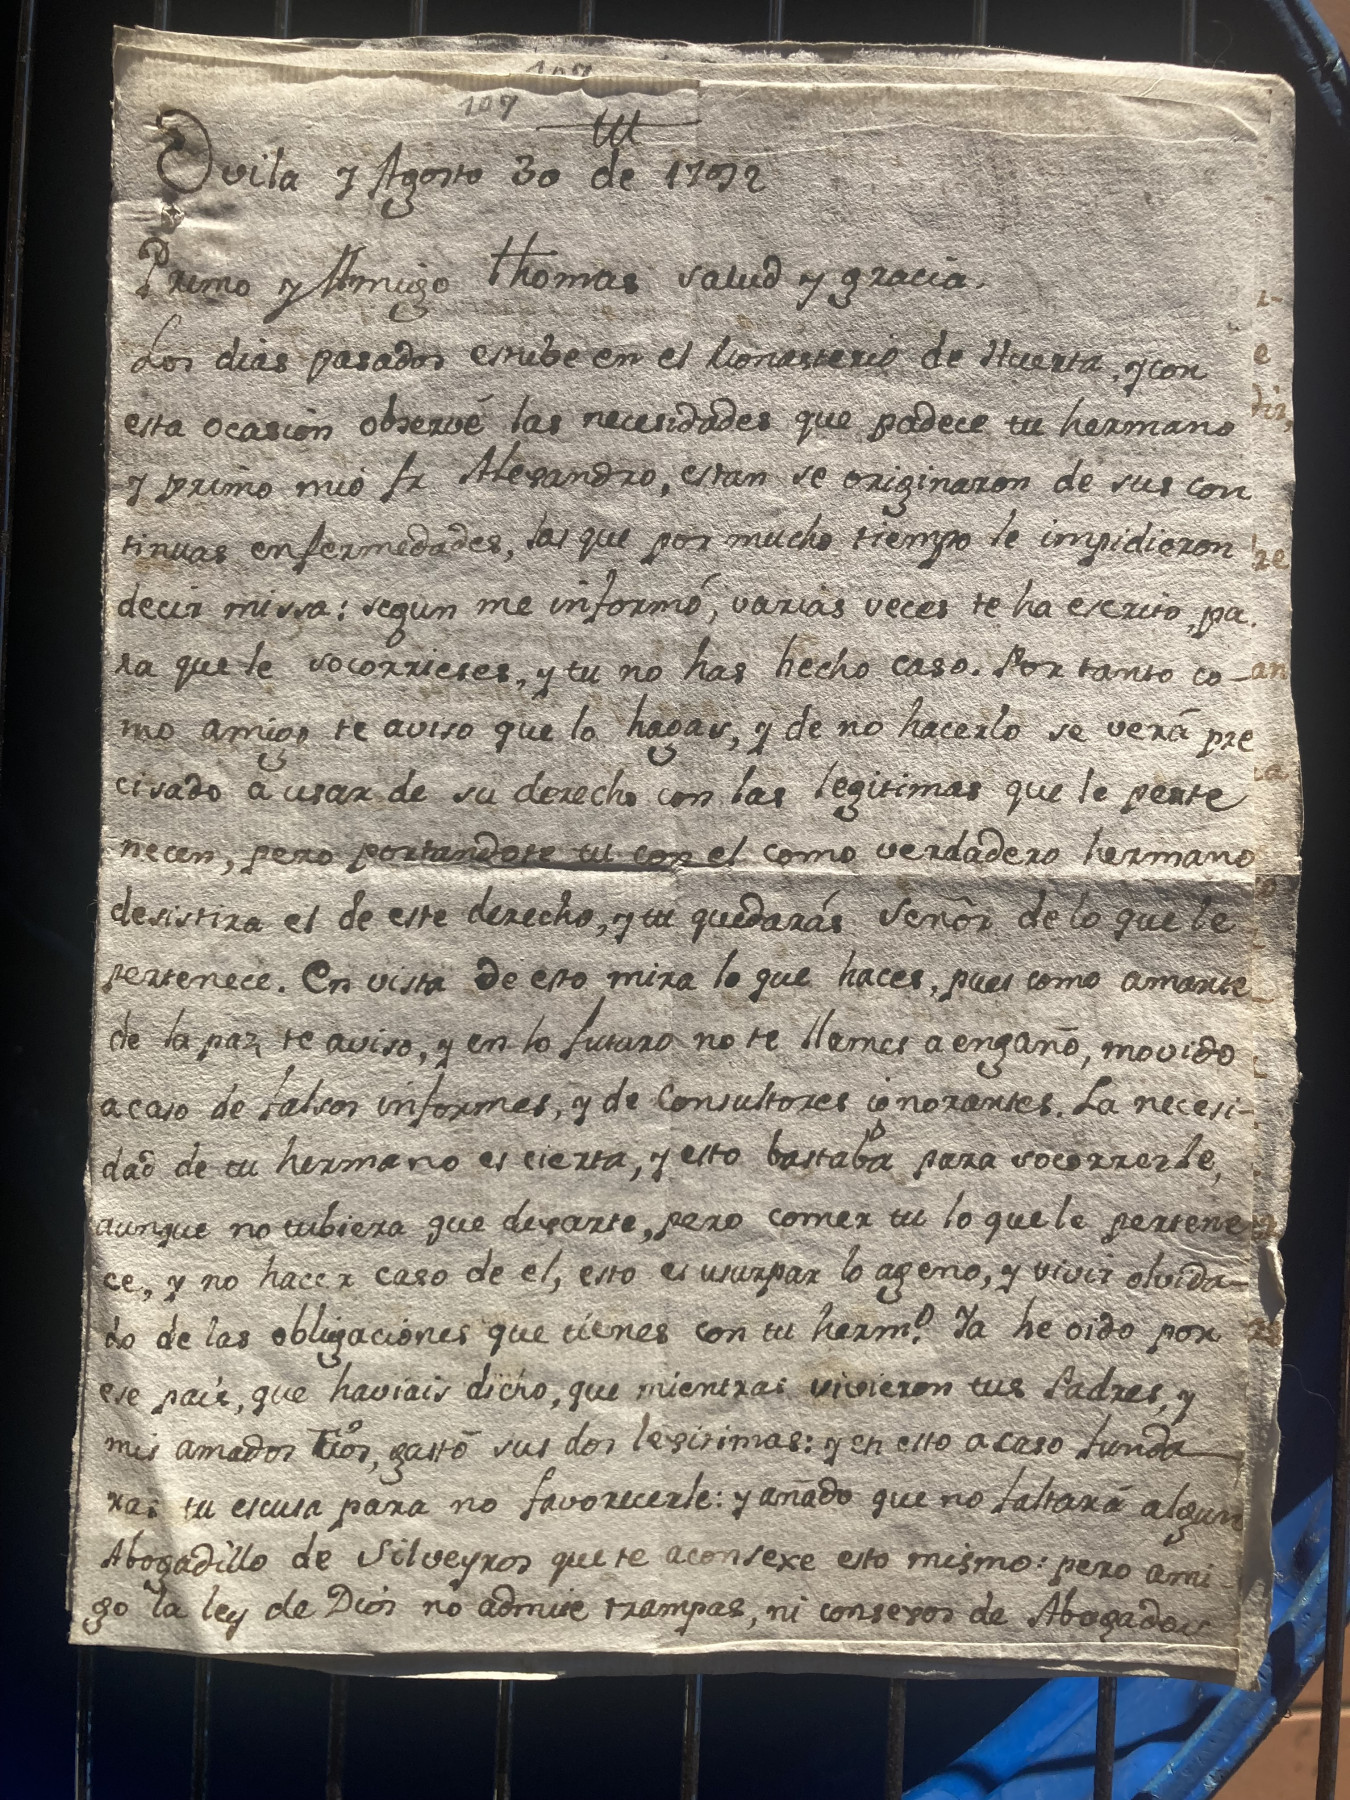 107
Ovila y Agosto 30 de 1792
Primo y Amigo Thomas salud y gracia.
Los dias pasados estube en el Monasterio de Huerta, y con
esta ocasion observé las necesidades que padece tu hermano
y primo mio fr Alexandro, estan se originaron de sus con
tinuas enfermedades, las que por mucho tiempo le impidieron
decir missa: segun me informó, varias veces te ha escrito, pa.
ra que le socorrieses, y tu no has hecho caso. Por tanto co-
mo amigo te aviso que lo hagas, y de no hacerlo se verá pre
cisado á usar de su derecho con las legitimas que le perte
necen, pero portandote tu con el como verdadero hermano
desistira el de este derecho, y tu quedarás Señor de lo que le
pertenece. En vista de esto mira lo que haces, pues como amante
de la paz te aviso, y en lo futuro no te llames a engaño, movido
acaso de falsos informes, y de Consultores ignorantes. La necesi-
dad de tu hermano es cierta, y esto bastaba para socorrerle,
aunque no tubiera que dexarte, pero comer tu lo que le pertene
ce, y no hacer caso de el, esto es usurpar lo ageno, y vivir olvida-
do de las obligaciones que tienes con tu herm.º Ya he oido por
ese pais, que haviais dicho, que mientras vivieron tus Padres, y
mis amados Tios, gastó sus dos legitimas: y en esto acaso funda
ras tu escusa para no favorecerle: y añado que no faltará algun
Abogadillo de Silveyros que te aconsexe esto mismo: pero ami-
go la ley de Dios no admite trampas, ni consexos de Abogados